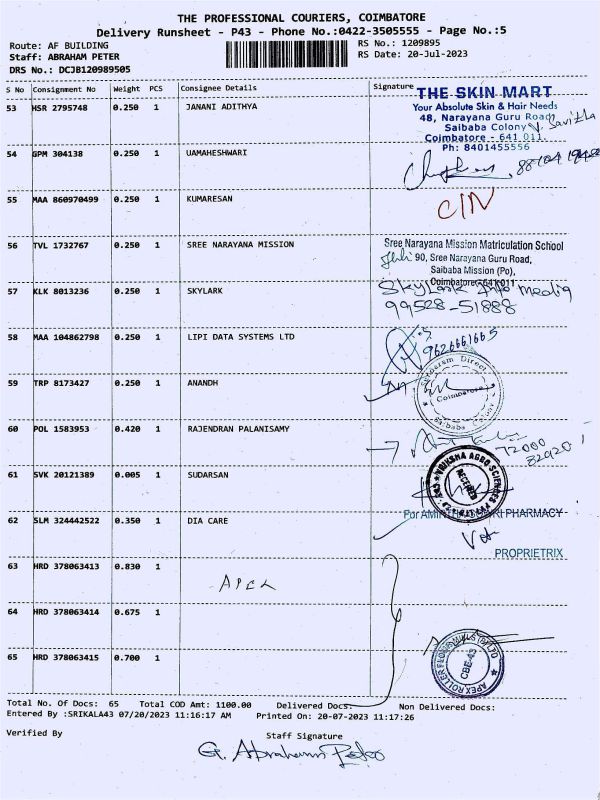 THE PROFESSIONAL COURIERS, COIMBATORE
Delivery Runsheet - P43 - Phone No.:0422-3505555 - Page No.:5
Route: AF BUILDING
RS No.: 1209895
Staff: ABRAHAM PETER
RS Date: 20-Jul-2023
DRS No.: DCJB120989505
S No Consignment No Weight PCS Consignee Details Signature
THE SKIN MART
Your Absolute Skin & Hair Needs
48, Narayana Guru Road
Saibaba Colony
Coimbatore - 641 011
Ph: 8401455556
V. Savitha
53 HSR 2795748 0.250 1 JANANI ADITHYA
54 GPM 304138 0.250 1 UAMAHESHWARI
55 MAA 860970499 0.250 1 KUMARESAN
CIN
56 TVL 1732767 0.250 1 SREE NARAYANA MISSION
Sree Narayana Mission Matriculation School
90, Sree Narayana Guru Road,
Saibaba Mission (Po),
Coimbatore-641 011
57 KLK 8013236 0.250 1 SKYLARK
SkyLark Info media
99528-51888
58 MAA 104862798 0.250 1 LIPI DATA SYSTEMS LTD
9626661665
59 TRP 8173427 0.250 1 ANANDH
Direct
Coimbatore
Saibaba Colony
60 POL 1583953 0.420 1 RAJENDRAN PALANISAMY
72000
82920
61 SVK 20121389 0.005 1 SUDARSAN
VRIKSHA AGRO SCIENCES
RECEIVED
62 SLM 324442522 0.350 1 DIA CARE
For PHARMACY
PROPRIETRIX
63 HRD 378063413 0.830 1
APEX
64 HRD 378063414 0.675 1
65 HRD 378063415 0.700 1
APEX ROLLER FLOUR MILLS (P) LTD
CBE-43
Total No. Of Docs: 65 Total COD Amt: 1100.00 Delivered Docs: Non Delivered Docs:
Entered By :SRIKALA43 07/20/2023 11:16:17 AM Printed On: 20-07-2023 11:17:26
Verified By
Staff Signature
G. Abraham Peter